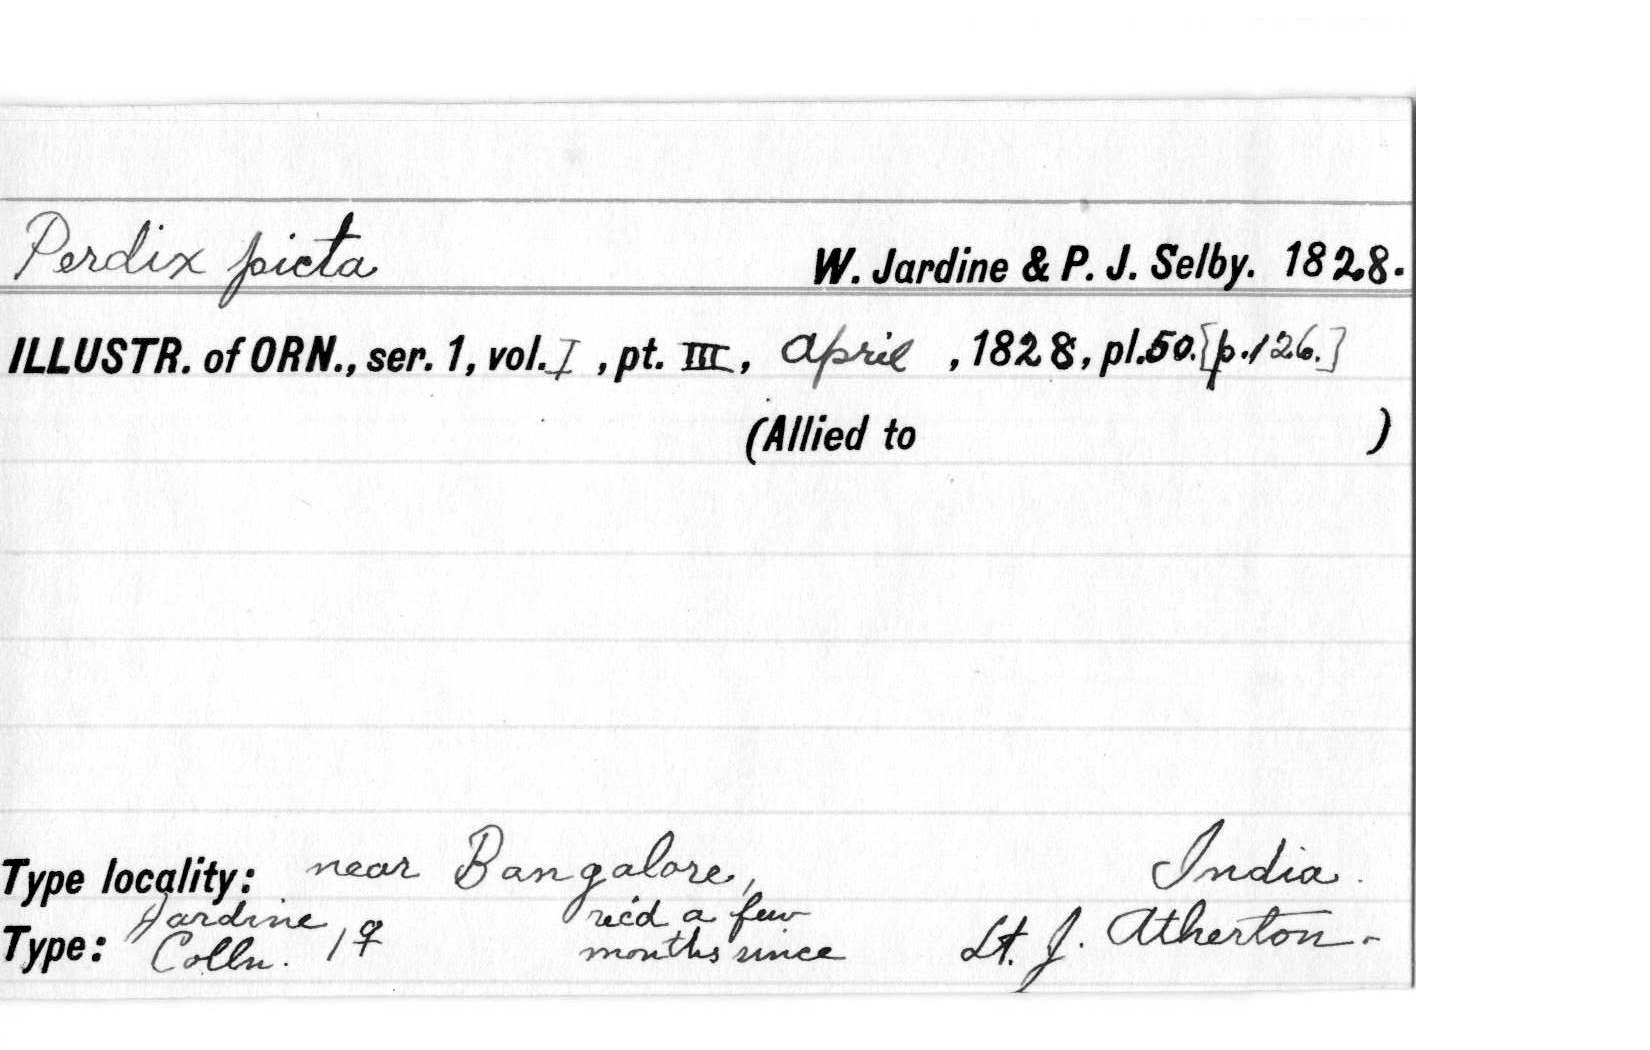 Perdix picta W. Jardine & P. J. Selby. 1828.
ILLUSTR. of ORN., ser. 1, vol. I , pt. III, April , 1828, pl. 50. [p. 126.]
(Allied to )
Type locality: near Bangalore, India.
Type: Jardine Colln. 1 ♀ rec'd a few months since Lt. J. Atherton.